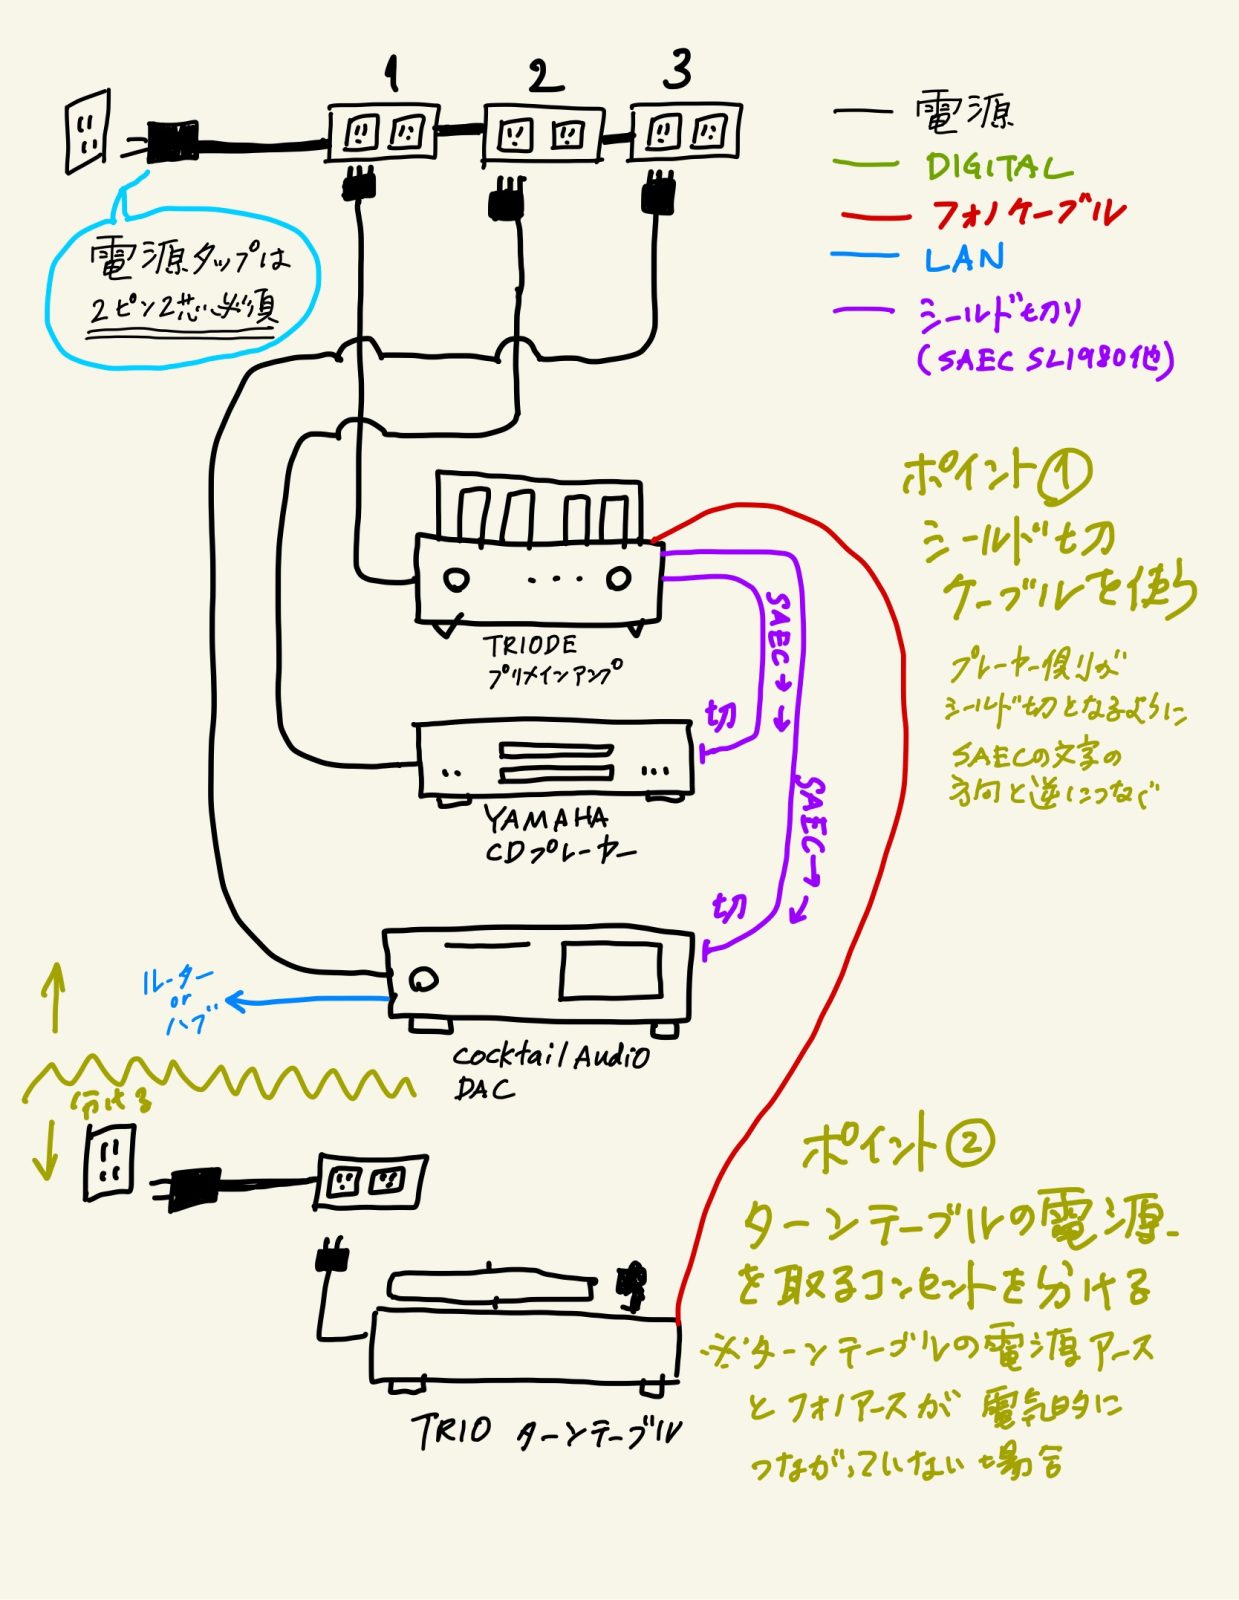 1
2
3
電源タップは
2ピン2芯必須
電源
DIGITAL
フォノケーブル
LAN
シールド切り
(SAEC SL1980他)
ポイント①
シールド切
ケーブルを使う
プレーヤー側が
シールド切となるように
SAECの文字の
方向と逆につなぐ
TRIODE
プリメインアンプ
SAEC→→
切
YAMAHA
CDプレーヤー
SAEC→→
切
ルーター
or
ハブ
cocktail Audio
DAC
分ける
ポイント②
ターンテーブルの電源
を取るコンセントを分ける
※ターンテーブルの電源アース
とフォノアースが電気的に
つながっていない場合
TRIO ターンテーブル